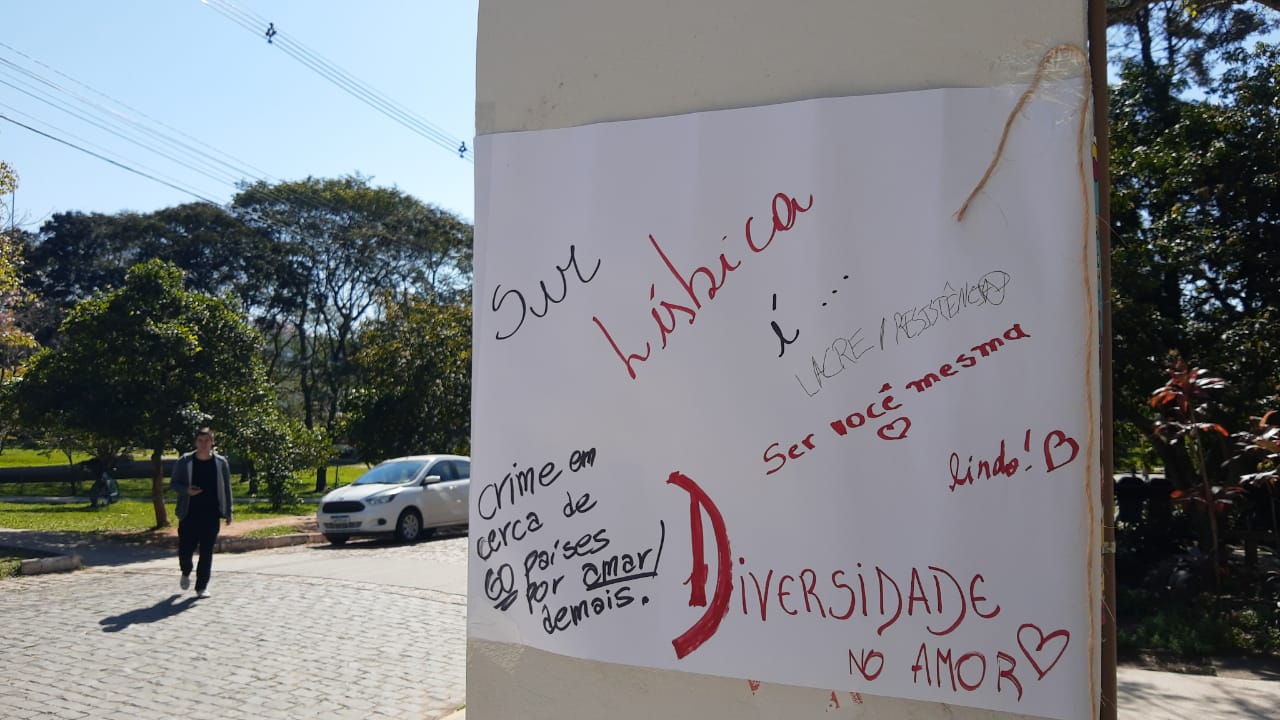 Ser Lésbica é...
LACRE / RESISTÊNCIA
Ser você mesma
lindo!
Crime em
cerca de
60 países
por amar
demais.
DIVERSIDADE
NO AMOR